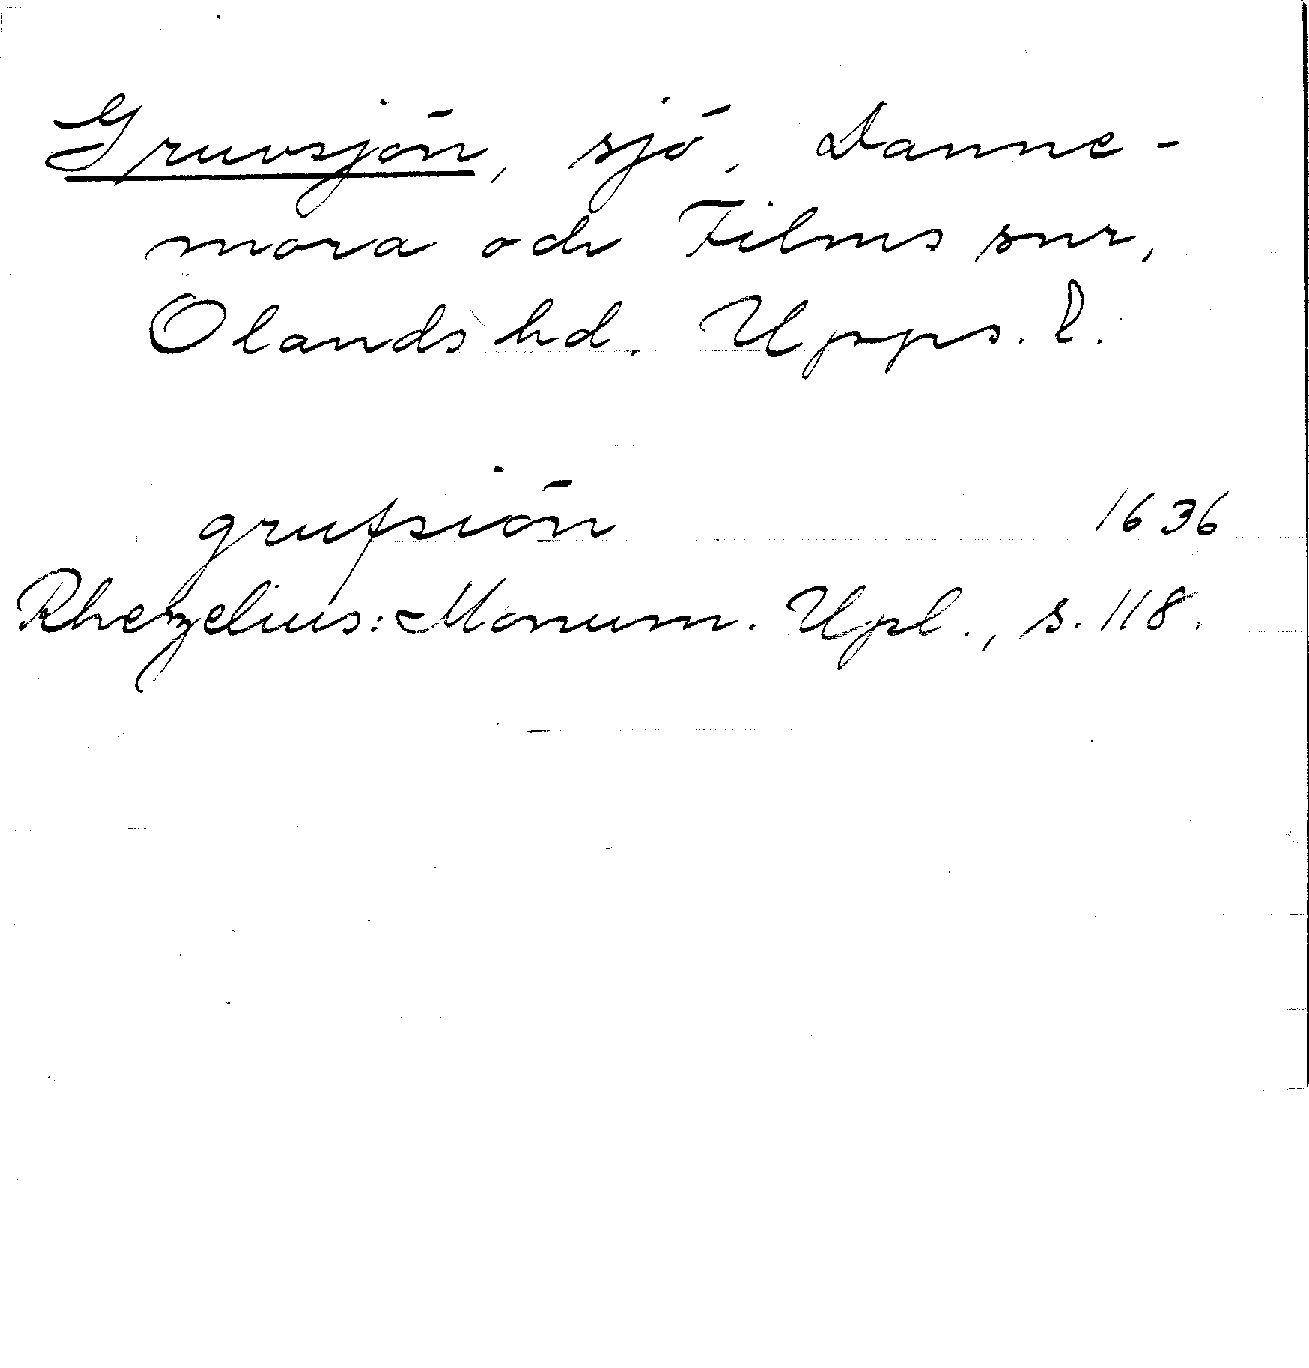 Gruvsjön, sjö, Danne-
mora och Films snr,
Olands hd. Upps. l.
grufsiön 1636
Rhezelius: Monum. Upl., s. 118.